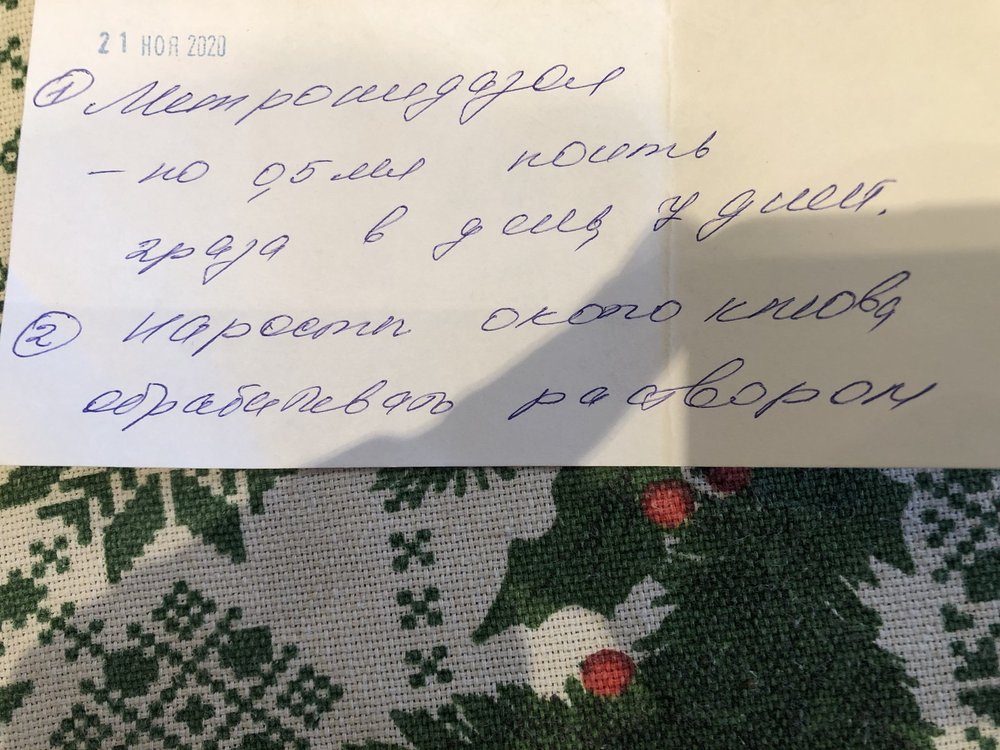 21 НОЯ 2020
① Метронидазол
– по 0,5 мл поить
2 раза в день, 4 дней.
② Наросты около клюва
обрабатывать раствором